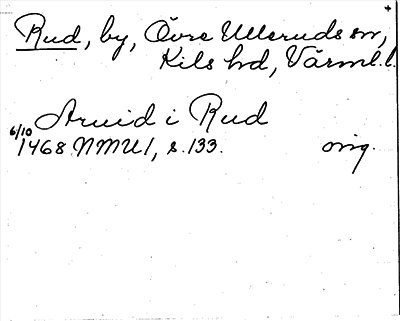 Rud, by, Övre Ulleruds sn,
Kils hd, Värml. l.
Arvid i Rud
6/10 1468 NMU 1, s. 133. orig.